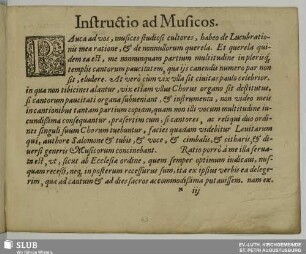 Instructio ad Musicos.
PAuca ad vos, musices studiosi cultores, habeo de Lucubratio-
nis mea ratione, & de nonnullorum querela. Et querela qui-
dem ea est, me nonnunquam partium multitudine in plerisq;
templis cantorum paucitatem, quæ ijs canendis numero par non
sit, eludere. At verò cùm vix ulla sit civitas paulo celebrior,
in qua non tibicines alantur, vix etiam ullus Chorus organo sit destitutus,
si cantorum paucitati organa subveniant, & instrumenta, non video meis
in cantionibus tantam partium copiam, quam non illi vocum multitudine iu-
cundissima consequantur, præsertim cum, si cantores, ac reliqui duo ordi-
nes singuli suum Chorum tueantur, facies quædam videbitur Levitarum
qui, authore Salomone & tubis, & voce, & cimbalis, & citharis, & di-
versi generis Musicorum concinebant. Ratio porrò à me illa serva-
ta est, ut, sicut ab Ecclesia ordine, quem semper optimum iudicavi, nus-
quam recessi, neq; in posterum recessurus sum, ita ex ipsius verbis ea delege-
rim, quæ ad cantum & ad dies sacros accommodatissima putavissem. nam ex
iij
SLUB
Wir führen Wissen.
EV.-LUTH. KIRCHGEMEINDE
ST. PETRI AUGUSTUSBURG